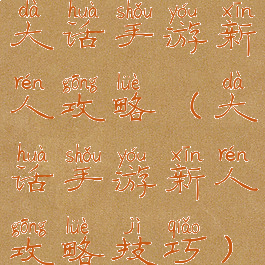 dà huà shǒu yóu xīn
大话手游新
rén gōng lüè dà
人攻略（大
huà shǒu yóu xīn rén
话手游新人
gōng lüè jì qiǎo
攻略技巧）